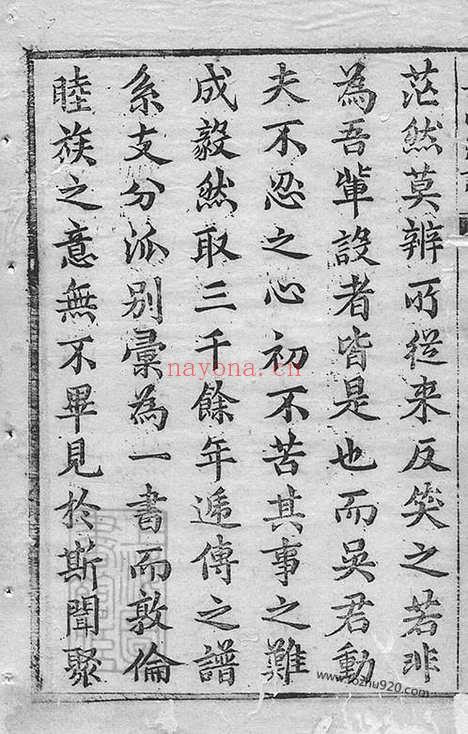 茫然莫辨所從来反笑之若非
為吾軰設者皆是也而吳君動
夫不忍之心初不苦其事之難
成毅然取三千餘年遞傳之譜
系支分派别彚為一書而敦倫
睦族之意無不畢見於斯聞聚
nayona.cn
www.fozhu920.com